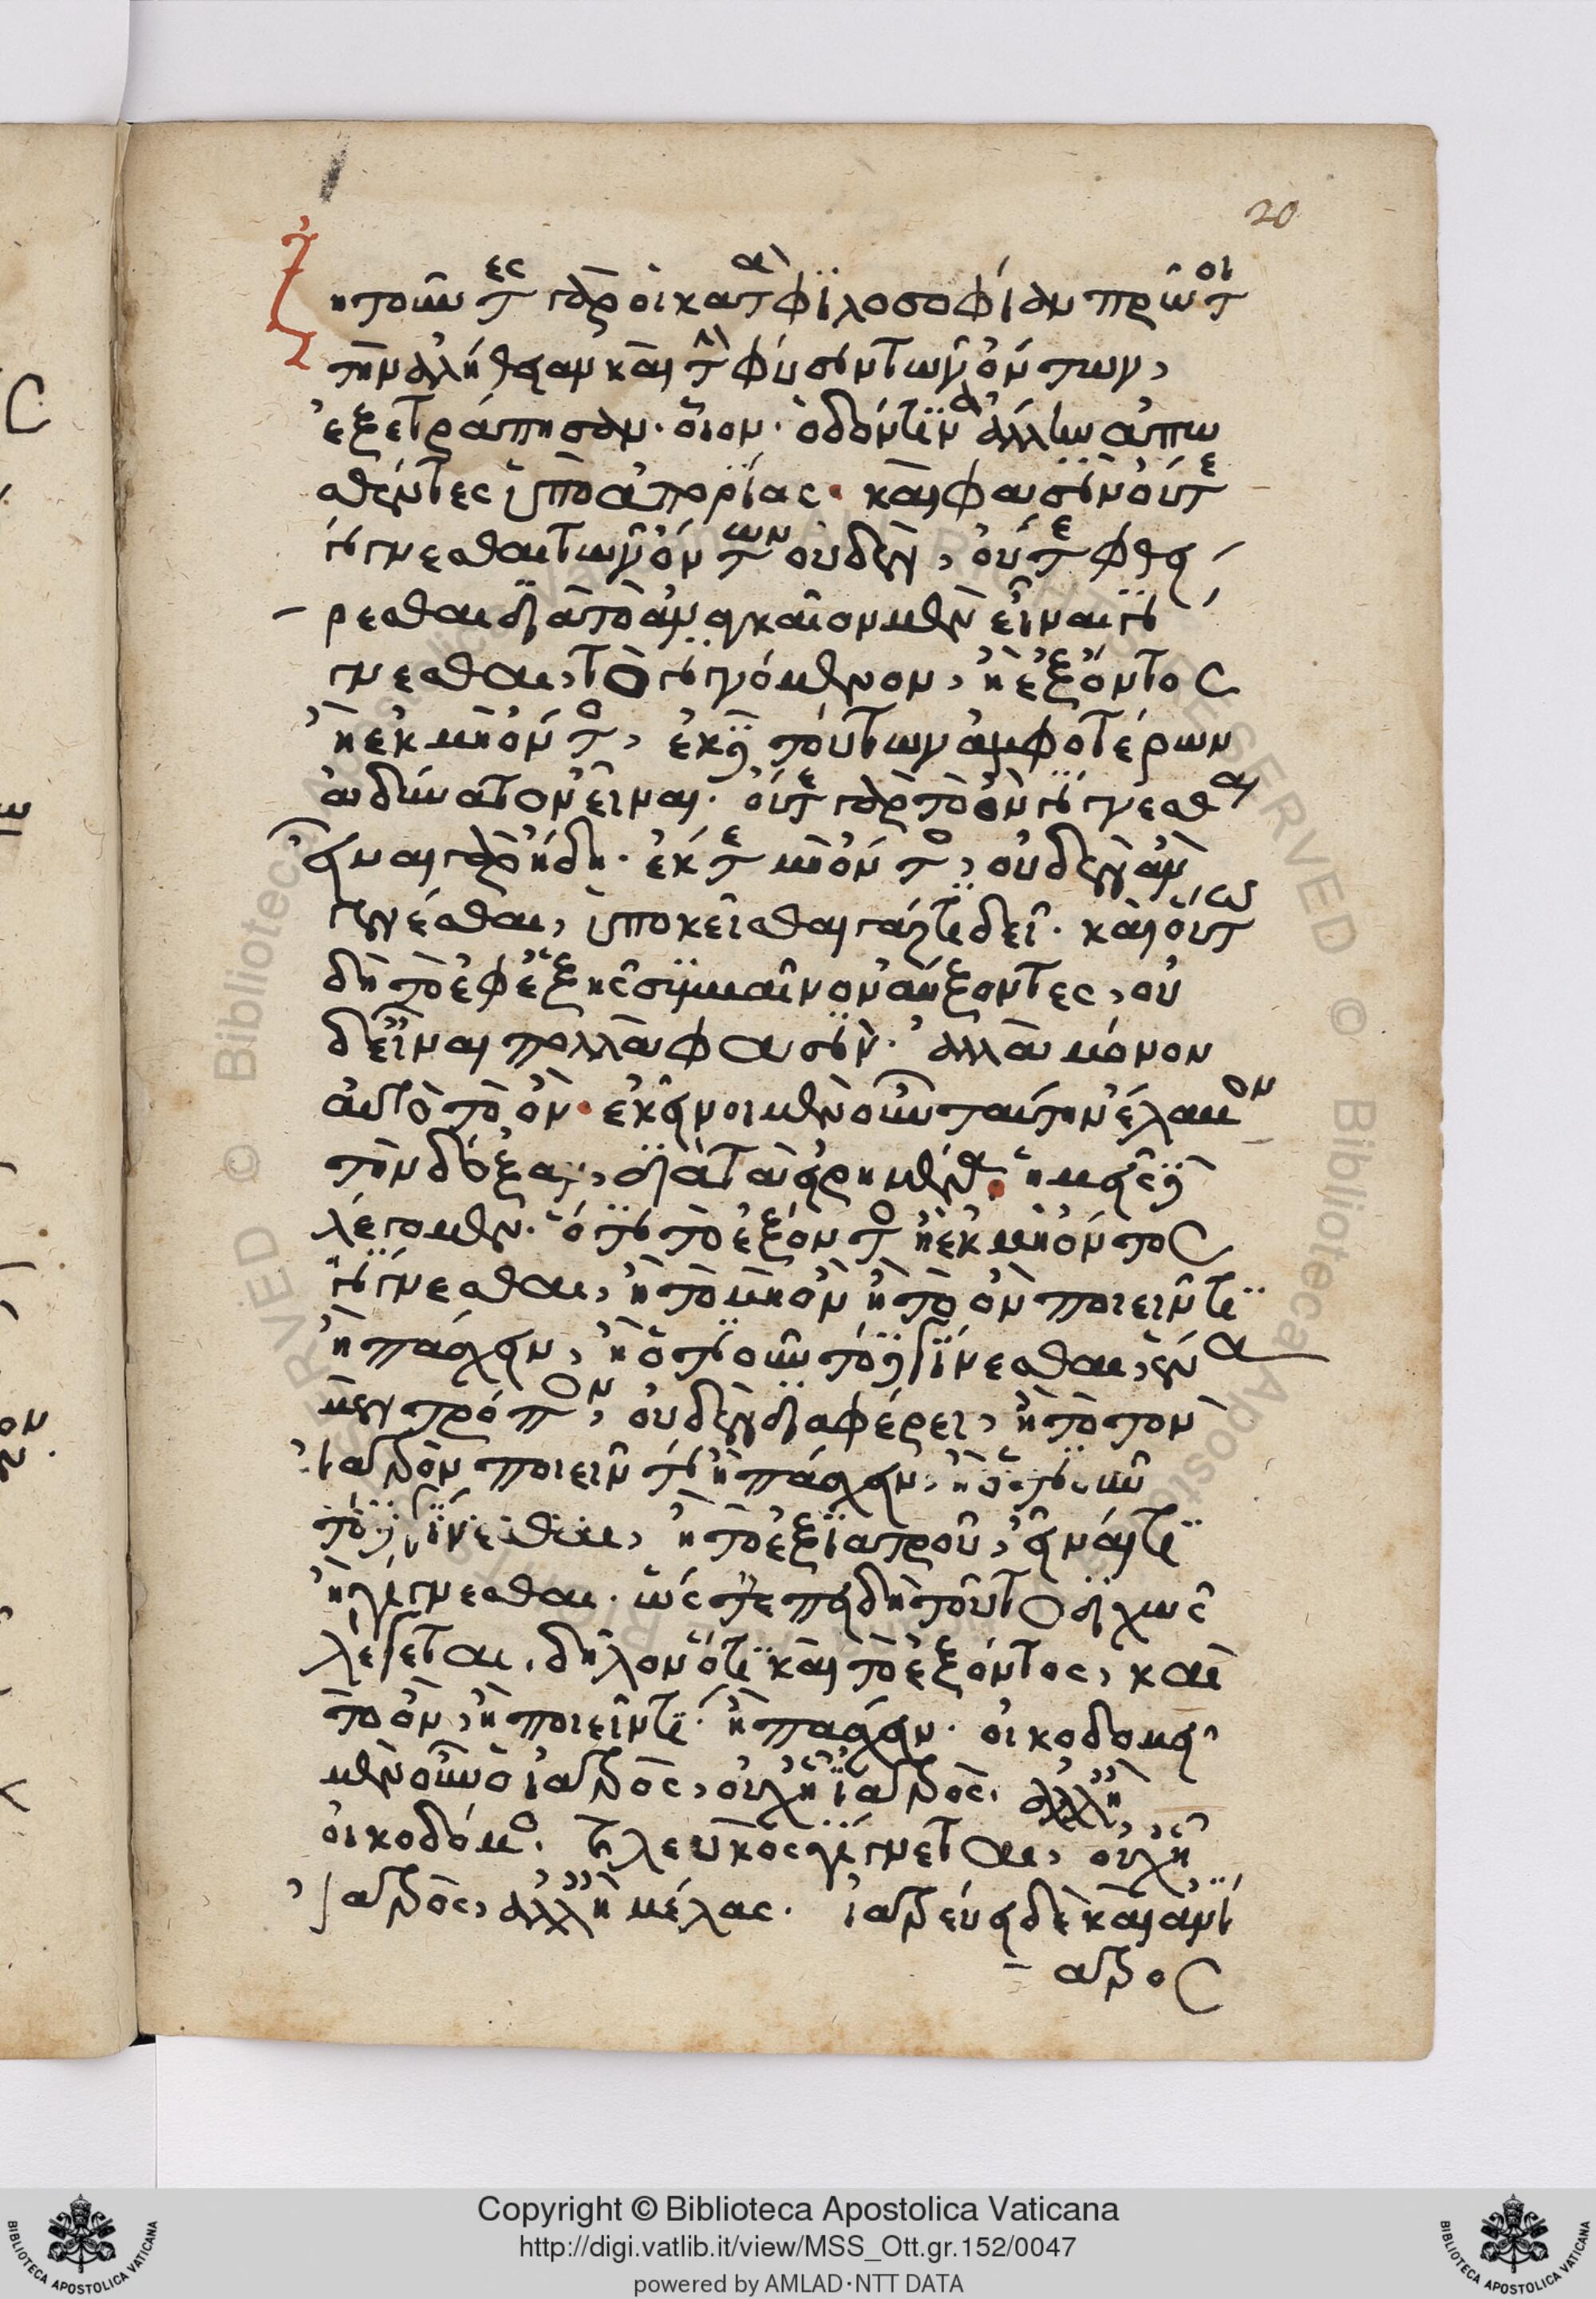 20
Ζητοῦντες γὰρ οἱ κατὰ φιλοσοφίαν πρῶτοι
τὴν ἀλήθειαν καὶ τὴν φύσιν τῶν ὄντων,
ἐξετράπησαν. οἷον. ὁδόν τινα ἄλλην ἀπω
σθέντες ὑπὸ ἀπορίας. καὶ φασὶν οὔτε
γίγνεσθαι τῶν ὄντων οὐδὲν, οὔτε φθεί
ρεσθαι διὰ τὸ ἀναγκαῖον μὲν εἶναι γί
γνεσθαι, τὸ γιγνόμενον, ἢ ἐξ ὄντος
ἢ ἐκ μὴ ὄντος, ἐκ δὲ τούτων ἀμφοτέρων
ἀδύνατον εἶναι. οὔτε γὰρ τὸ ὂν γίγνεσθαι
εἶναι γὰρ ἤδη. ἔκ τε μὴ ὄντος, οὐδὲν ἂν
γενέσθαι, ὑποκεῖσθαι γάρ τι δεῖ. καὶ οὕτω
δὴ τὸ ἐφεξῆς συμβαῖνον αὔξοντες, οὐ
δ' εἶναι πολλὰ φασὶν. ἀλλὰ μόνον
αὐτὸ τὸ ὄν. ἐκεῖνοι μὲν οὖν ταύτην ἔλαβον
τὴν δόξαν, διὰ τὰ εἰρημένα. ἡμεῖς δὲ
λέγομεν. ὅτι τὸ ἐξ ὄντος ἢ ἐκ μὴ ὄντος
γίγνεσθαι, ἢ τὸ μὴ ὂν ἢ τὸ ὂν ποιεῖν τι
ἢ πάσχειν, ἢ ὁτιοῦν τόδε γίνεσθαι, ἕνα
μὲν τρόπον, οὐδὲν διαφέρει, ἢ τὸ τὸν
ἰατρὸν ποιεῖν τι ἢ πάσχειν, ἢ ὁτιοῦν
τόδε γίνεσθαι, ἢ τὸ ἐξ ἰατροῦ, εἶναί τι
ἢ γίγνεσθαι. ὥστ' ἐπειδὴ τοῦτο διχῶς
λέγεται, δῆλον ὅτι καὶ τὸ ἐξ ὄντος, καὶ
τὸ ὂν, ἢ ποιεῖν τι. ἢ πάσχειν. οἰκοδομεῖ
μὲν οὖν ὁ ἰατρὸς, οὐχ ᾗ ἰατρὸς. ἀλλ' ᾗ
οἰκοδόμος. καὶ λευκὸς γίγνεται, οὐχ ᾗ
ἰατρὸς, ἀλλ' ᾗ μέλας. ἰατρεύει δὲ καὶ ἀνί
ατρος
Copyright © Biblioteca Apostolica Vaticana
http://digi.vatlib.it/view/MSS_Ott.gr.152/0047
powered by AMLAD·NTT DATA